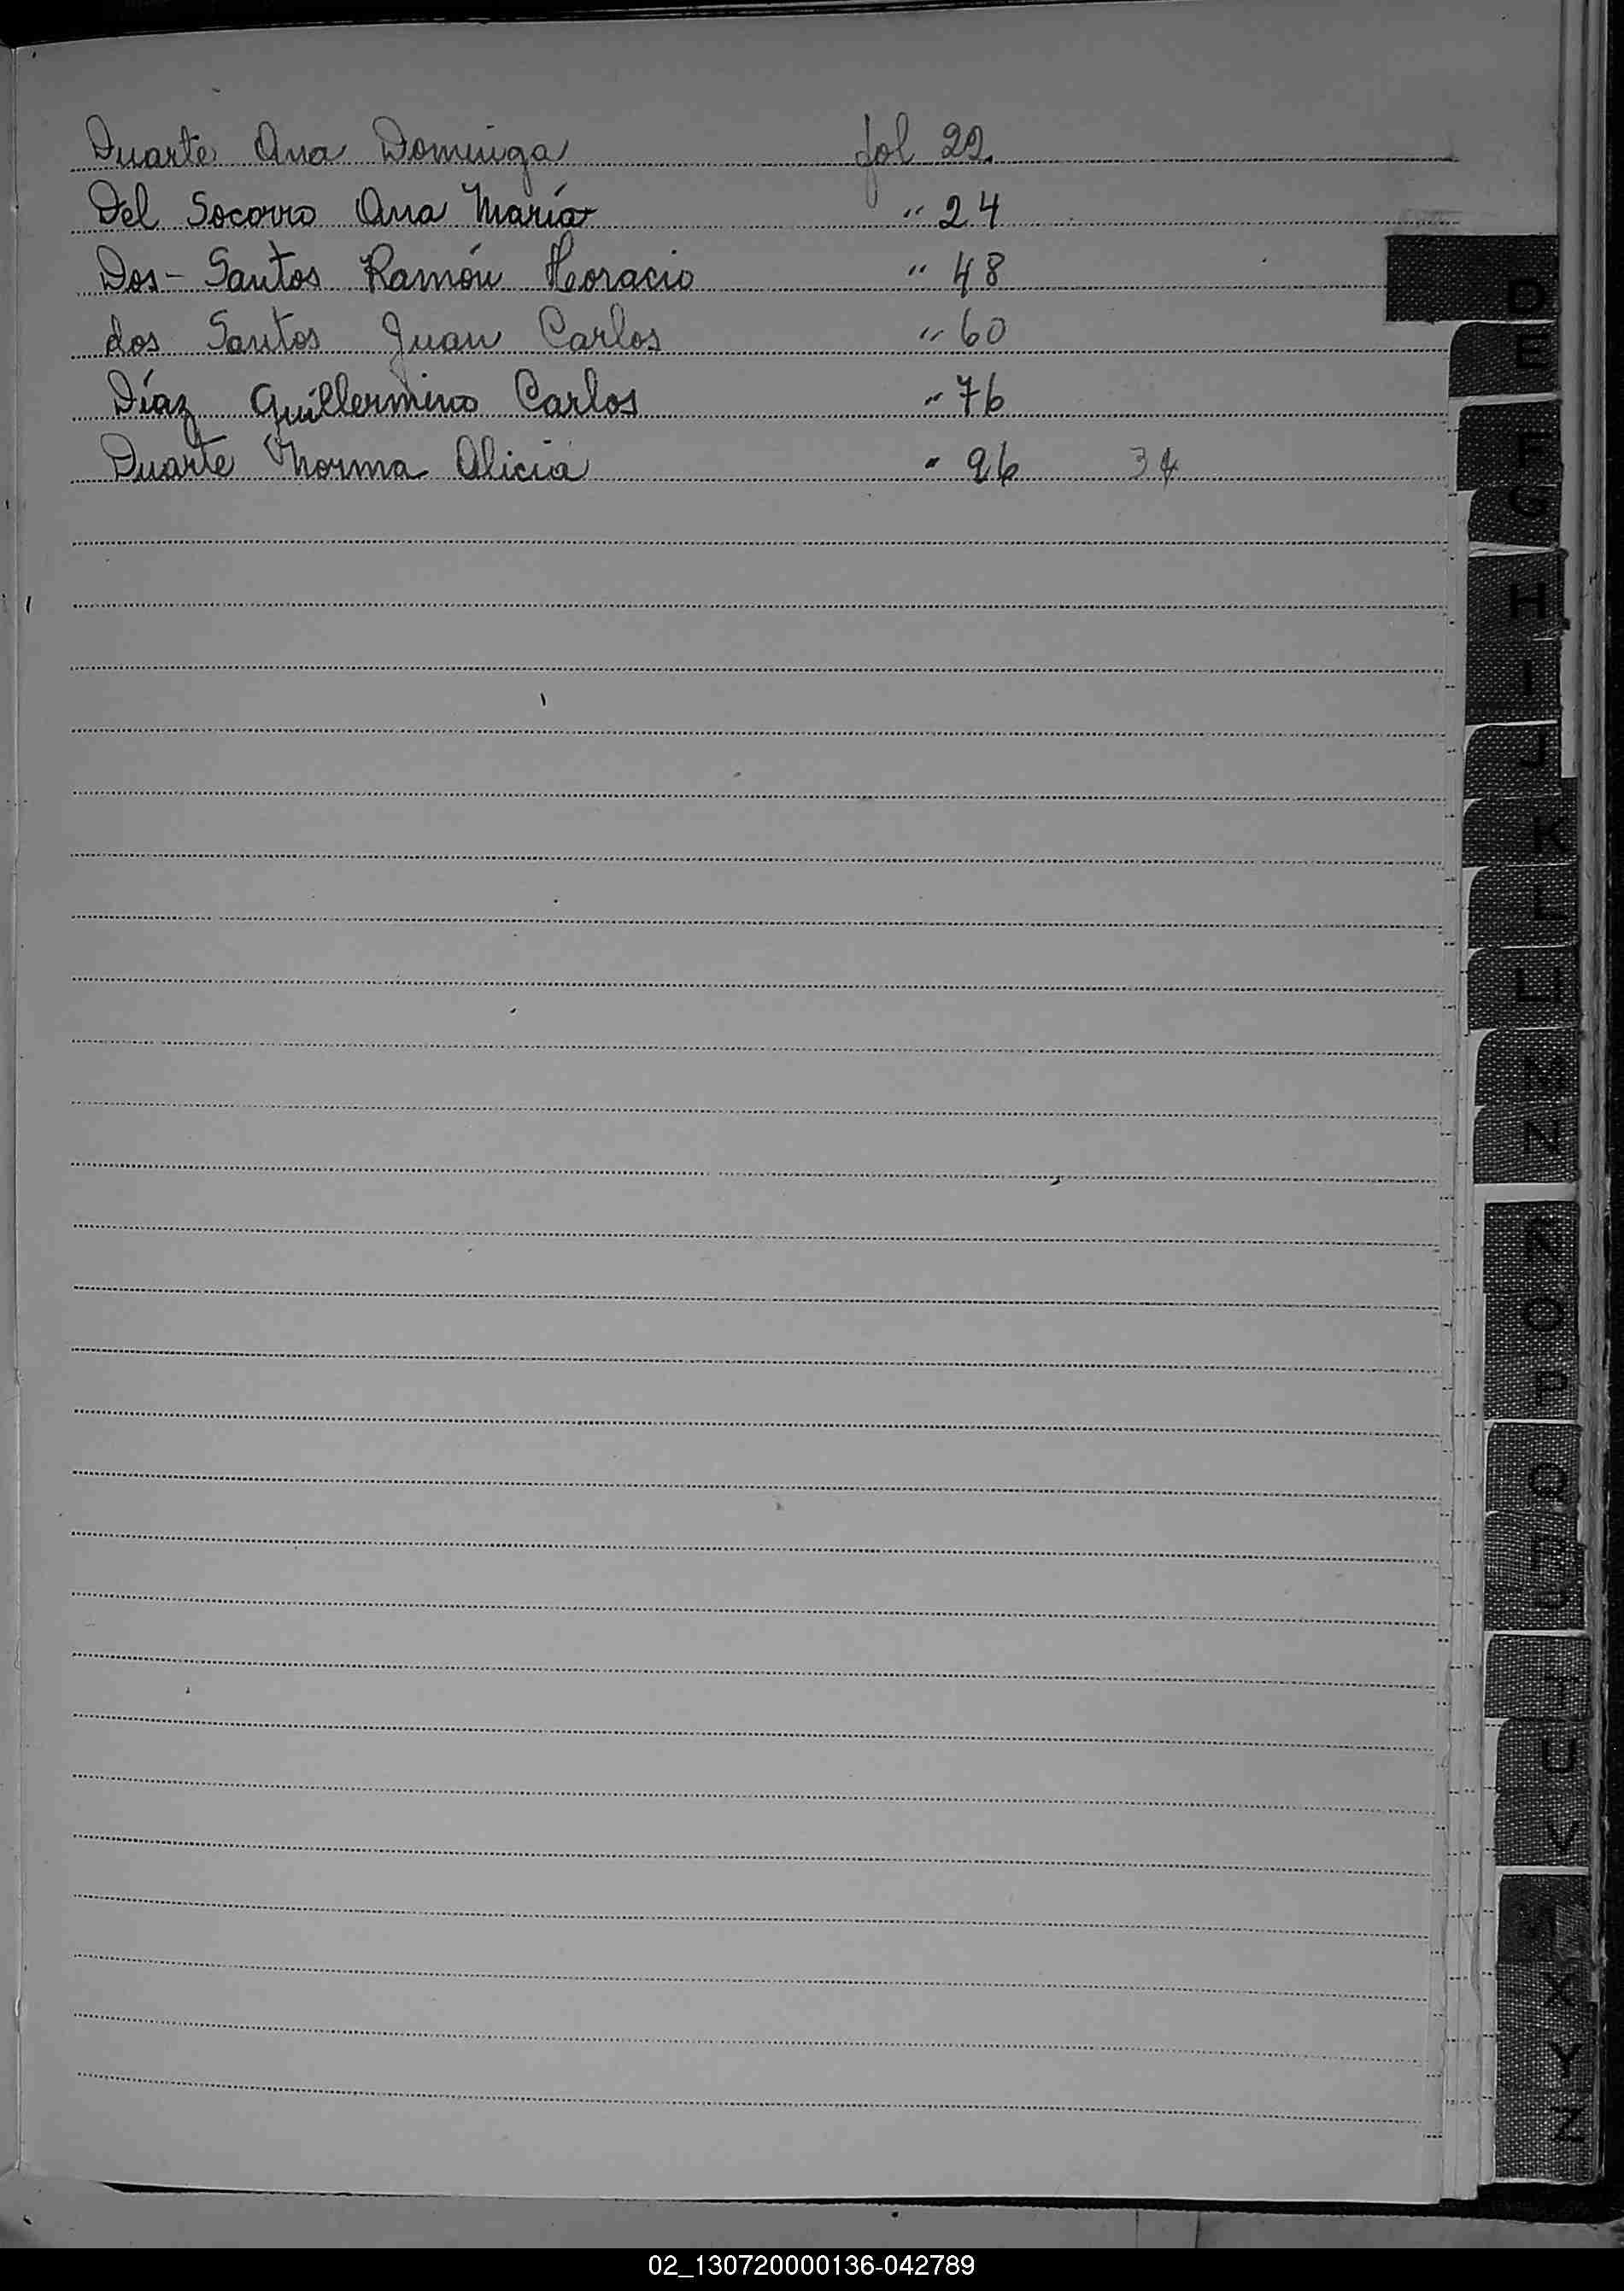 Duarte Ana Dominga fol 22
Del Socorro Ana María " 24
Dos-Santos Ramón Horacio " 48
dos Santos Juan Carlos " 60
Díaz Guillermino Carlos " 76
Duarte Norma Alicia " 96 34
D
E
F
G
H
I
J
K
L
LL
M
N
Ñ
O
P
Q
R
S
T
U
V
X
Y
Z
02_130720000136-042789